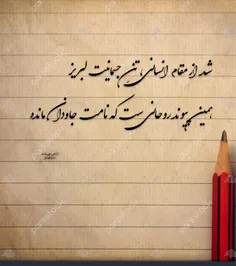 شد از مقام انسانی، تنِ جسمانیت لبریز
همین پیوند روحانی ست که نامت جاودان مانده